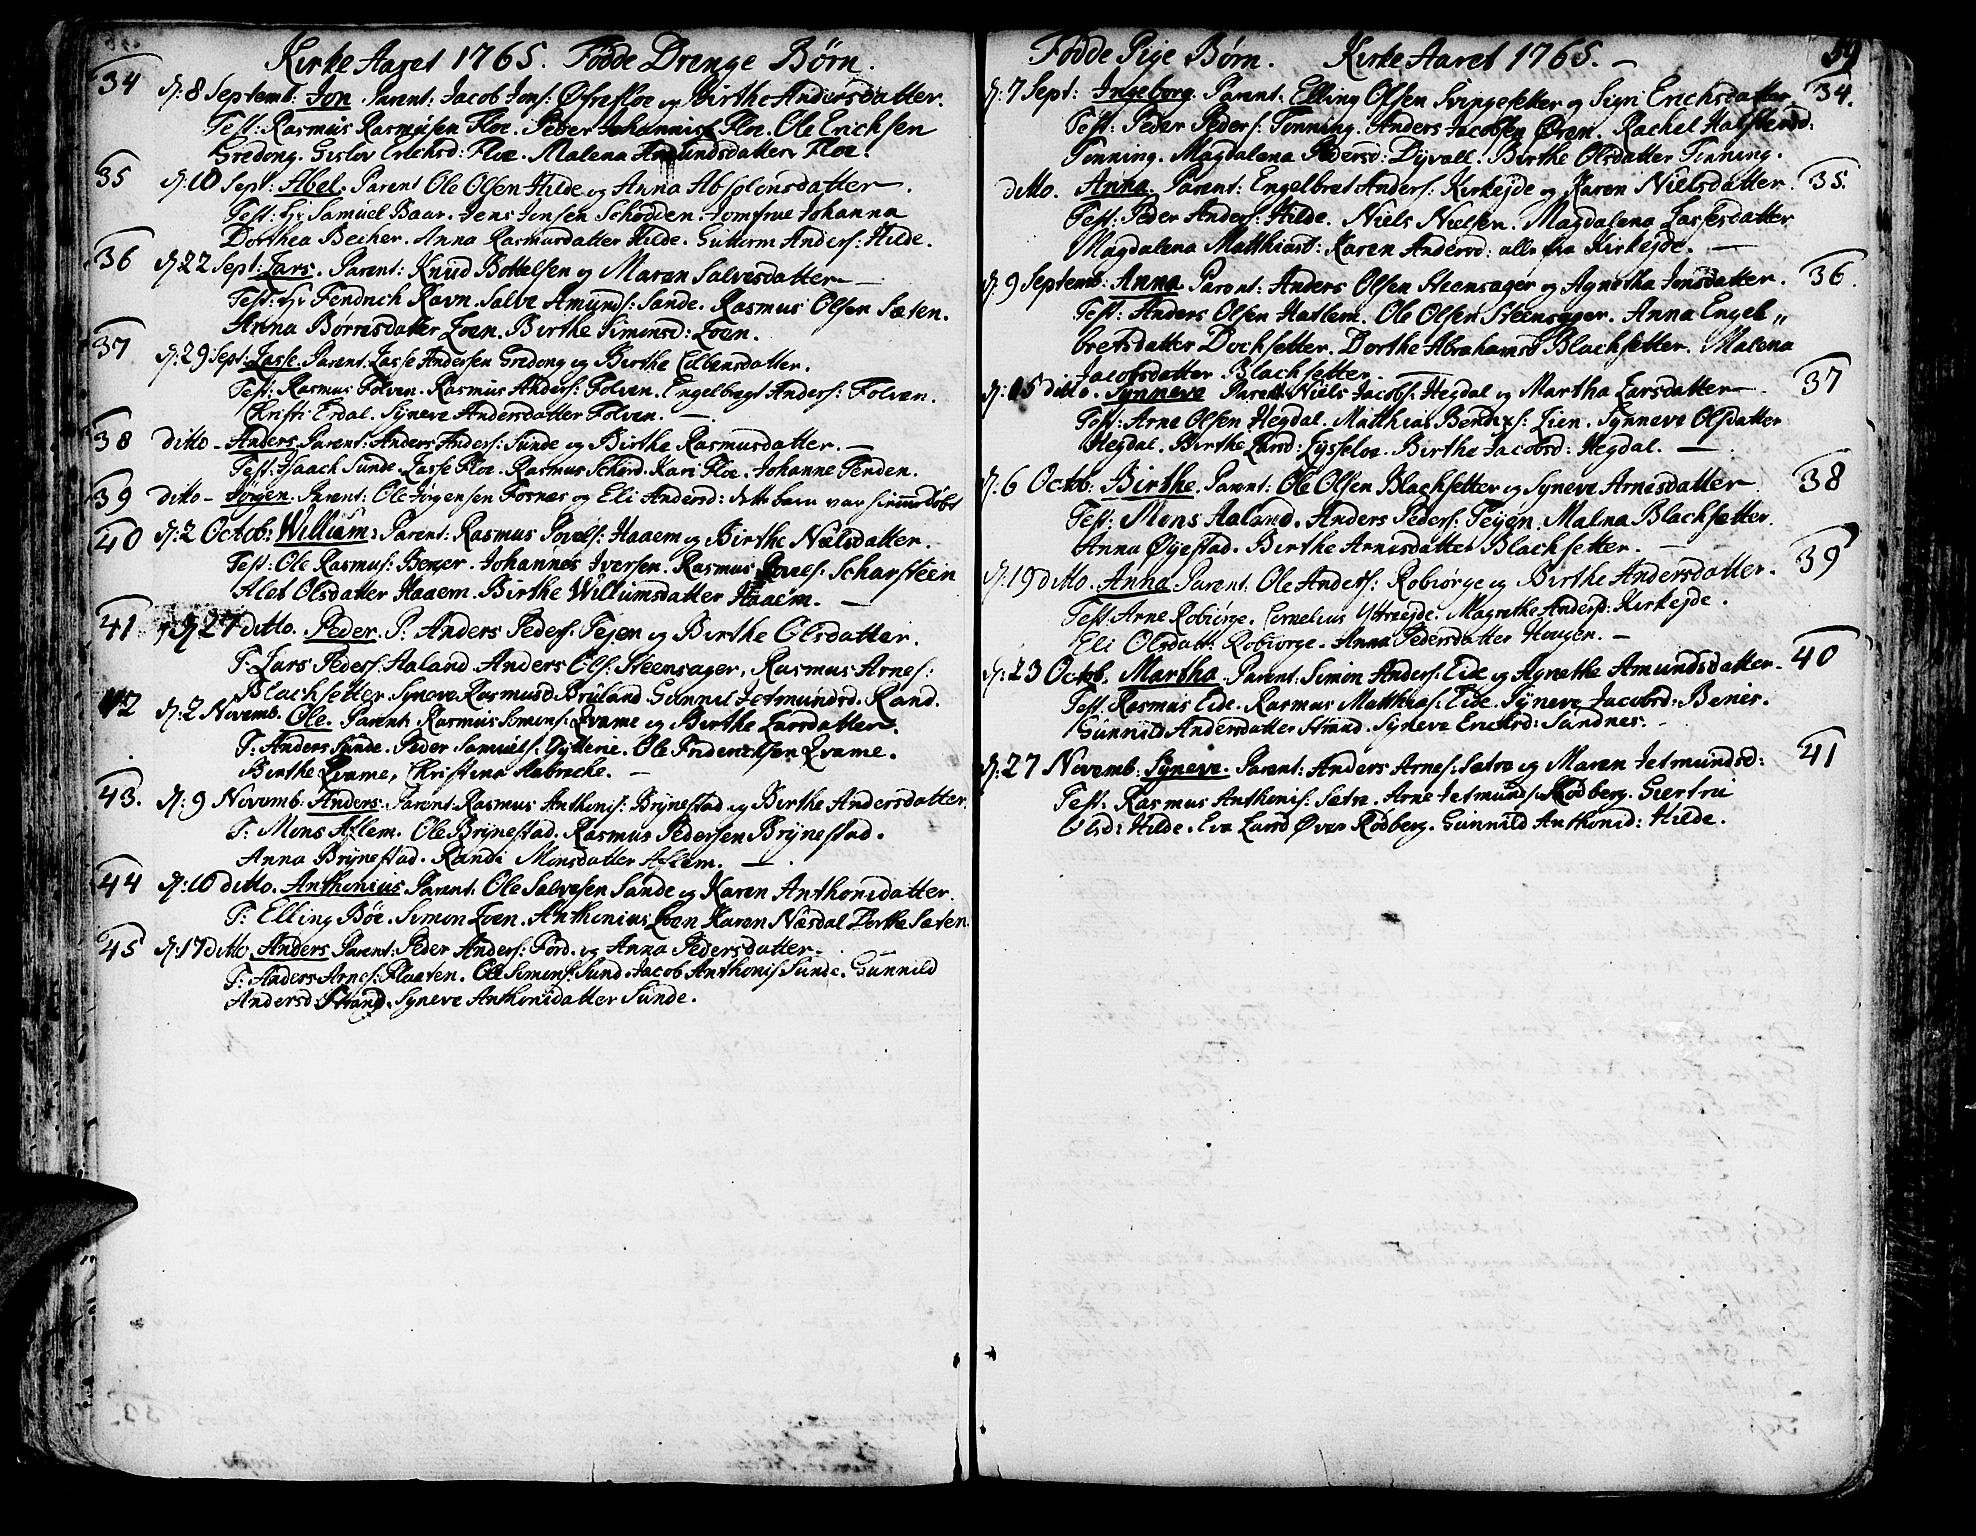 Kirke Aaret 1765. Fødde Drenge Børn.
34 D: 8 Septemb: Jon. Parent: Jacob Jons: Øfrefloe og Birthe Andersdatter.
Test: Rasmus Rasmusen Floe. Peder Johannis: Floe. Ole Erichsen
Gredong. Gislov Erichsd: Floe. Malena Amundsdatter Floe.
35 D: 10 Sept: Abel. Parent Ole Olsen Hilde og Anna Absolonsdatter.
Test: Hr Samuel Baar. Jens Jensen Schodden. Jomfrue Johanna
Dorthea Becher. Anna Rasmusdatter Hilde. Guttorm Anders: Hilde.
36 D: 22 Sept: Lars. Parent: Knud Bottelsen og Maren Salvesdatter
Test: Hr Fendrich Ravn. Salve Amunds: Sande. Rasmus Olsen Sæten.
Anna Børnsdatter Loen. Birthe Simonsd: Loen.
37 D: 29 Sept: Lasse. Parent: Lasse Andersen Gredong og Birthe Ellensdatter.
Test: Rasmus Folven. Rasmus Anders: Folven. Engelbregt Anders: Folven.
Christi Erdal. Syneve Andersdatter Folven.
38 ditto - Anders. Parent: Anders Anders: Sunde og Birthe Rasmusdatter.
Test: Isaach Sunde. Lasse Floe. Rasmus Schord. Kari Floe. Johanne Tenden.
39 ditto - Jørgen. Parent: Ole Jørgensen Fosnæs og Eli Andersd: dette barn var hiemmedøbt
40 D: 2 Octob: William: Parent: Rasmus Povels: Haaem og Birthe Nielsdatter.
Test: Ole Rasmus: Berger. Johannes Iversen. Rasmus Povels: Scharsteen
Alet Olsdatter Haaem. Birthe Williumsdatter Haaem.
41 D 27 ditto. Peder. P: Anders Peders: Tejen og Birthe Olsdatter.
T: Lars Peders: Aaland Anders Ols: Steensager. Rasmus Arnes:
Blachsetter. Syneve Rasmusd Bruland Gunnil Jetmundsd. Rand.
42 D: 2 Novemb. Ole. Parent: Rasmus Simons: Qvame og Birthe Larsdatter.
T: Anders Sunde. Peder Samuels: Gytterie. Ole Friderichsen Qvame.
Birthe Qvame, Christina Aabreche.
43. D: 9 Novemb: Anders. Parent: Rasmus Anthonis: Brynestad og Birthe Andersdatter.
T: Mons Aflem. Ole Brynestad. Rasmus Pedersen Brynestad.
Anna Brynestad. Randi Monsdatter Aflem.
44 D: 10 ditto. Anthonius Parent: Ole Salvesen Sande og Karen Anthonisdatter.
T: Elling Bøe. Simon Loen. Anthonius Loen Karen Næsdal Dorthe Sæten
45 D: 17 ditto Anders Parent: Peder Anders: Förd. og Anna Pedersdatter.
T: Anders Arnes: Flaaten. Ole Simons: Sund. Jacob Anthonis: Sunde. Gunnild
Andersd Strand. Syneve Anthonidatter Sunde.
Fødde Pige Børn. Kirke Aaret 1765. 59
D: 7 Sept: Ingeborg. Parent: Elling Olsen Svingesetter og Sigri Erichsdatter 34.
Test: Peder Peders: Tonning. Anders Jacobsen Øren. Rachel Halstensd:
Tonning. Magdalena Pedersd: Dyvall. Birthe Olsdatter Tonning.
ditto. Anna. Parent: Engelbret Anders: Kirkejde og Karen Nielsdatter. 35.
Test: Peder Anders: Hilde. Niels Nielsen. Magdalena Lassesdatter
Magdalena Matthiasd: Karen Andersd: alle fra Kirkejde.
D: 9 Septemb: Anna Parent: Anders Olsen Steensager og Agnetha Jonsdatter. 36.
Test: Anders Olsen Hatlem. Ole Olsen Steensager. Anna Engel„
bretsdatter Dochsetter. Dorthe Abrahamsd Blachsetter. Malena
Jacobsdatter Blachsetter.
D: 15 ditto. Synneve Parent: Niels Jacobs: Hegdal og Martha Larsdatter 37
Test: Arne Olsen Hegdal. Matthias Bendixs: Lien. Synneve Olsdatter
Hegdal. Birthe Larsd: Lysseloe. Birthe Jacobsd: Hegdal.
D: 6 Octob. Birthe. Parent: Ole Olsen Blachsetter og Syneve Arnesdatter 38
Test: Mons Aaland. Anders Peders: Tejen. Malna Blachsetter.
Anna Øyestad. Birthe Arnesdatter Blachsetter.
D: 19 ditto. Anna. Parent. Ole Anders: Robiørge og Birthe Andersdatter. 39
Test: Arne Robiørge. Cornelius Yttreejde. Magrethe Andersd: Kirkejde.
Eli Olsdatt: Robiorge. Anna Pedersdatter Hougen.
D: 23 Octob. Martha. Parent: Simon Anders: Eide og Agnethe Amundsdatter. 40
Test. Rasmus Eide. Rasmus Matthias: Eide. Syneve Jacobsd: Benes.
Gunnild Andersdatter Strand. Syneve Erichsd: Sandnes.
D: 27 Novemb: Syneve. Parent: Anders Arnes: Sætre og Maren Jetmundsd: 41
Test: Rasmus Anthonis: Sætre. Arne Jetmunds: Rodberg. Giertru
Olsd: Hilde. Eva Larsd Øvre Rodberg. Gunnild Anthonid: Hilde.